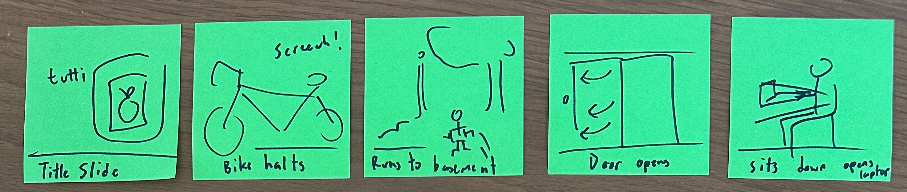 tutti
Title Slide
Screech!
Bike halts
Runs to basement
Door opens
sits down opens
laptop